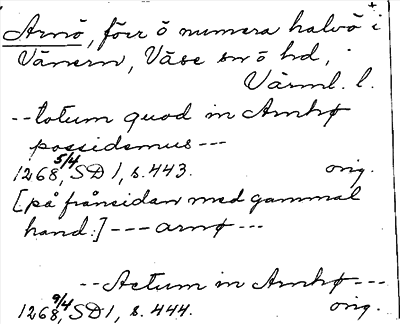 Arnö, förr ö numera halvö i
Vänern, Väse sn o hd,
Värml. l.
--totum quod in Arnhø
possidemus---
1268 5/4, SD 1, s. 443. orig.
[på frånsidan med gammal
hand:] --- arnø ---
--Actum in Arnhø---
1268 9/4, SD 1, s. 444. orig.